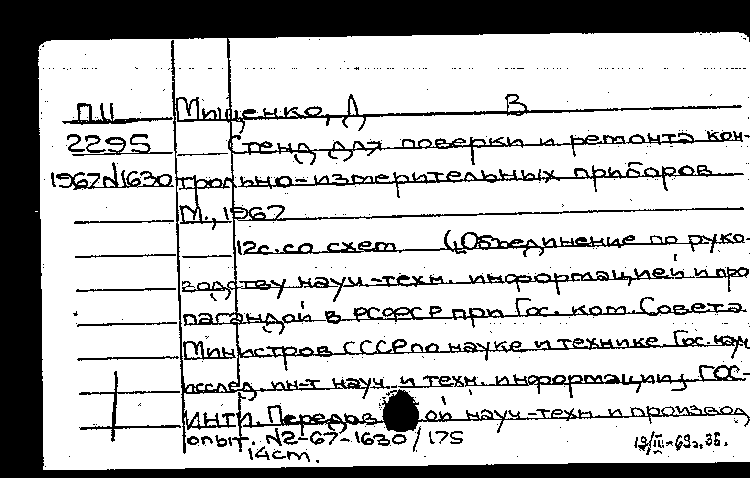 П11 Мищенко, Д В
2295 Стенд для поверки и ремонта кон-
1967 N1630 трольно-измерительных приборов
М., 1967
12с. со схем (Объединение по руко-
водству науч.-техн. информацией и про
пагандой в РСФСР при Гос. ком. Совета
Министров СССР по науке и технике. Гос. науч
исслед. ин-т науч. и техн. информации, ГОС-
ИНТИ. Передов ой науч.-техн. и производ
опыт. N2-67-1630/175
14cm.